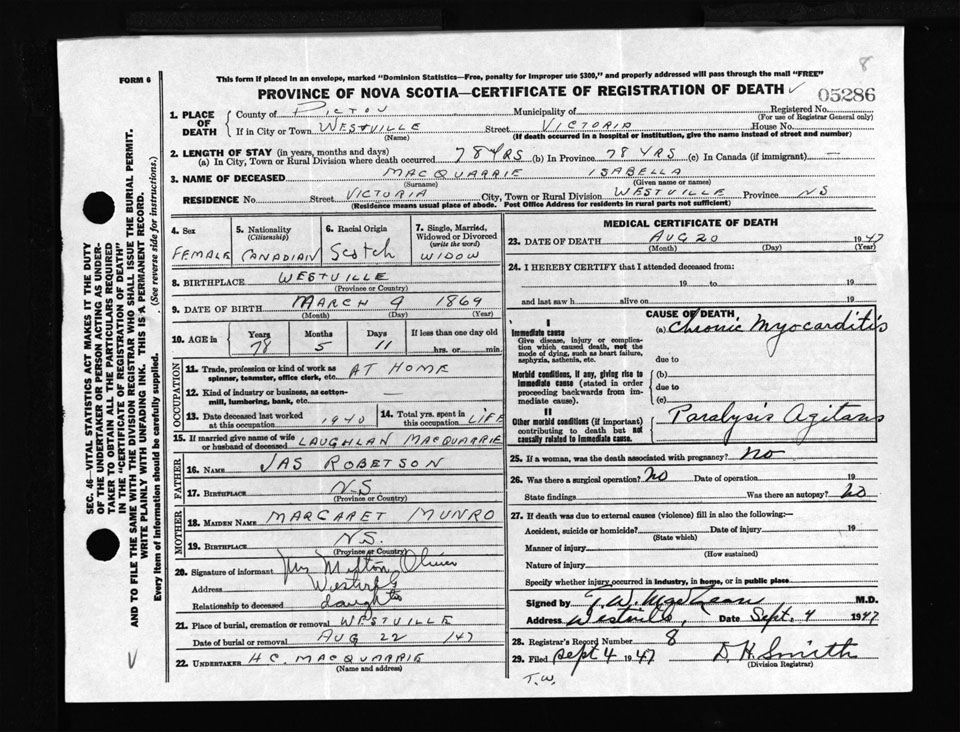 8
FORM 6
This form if placed in an envelope, marked "Dominion Statistics—Free, penalty for improper use $300," and properly addressed will pass through the mail "FREE"
PROVINCE OF NOVA SCOTIA—CERTIFICATE OF REGISTRATION OF DEATH ✓ 05286
SEC. 46—VITAL STATISTICS ACT MAKES IT THE DUTY
OF THE UNDERTAKER OR PERSON ACTING AS UNDER-
TAKER TO OBTAIN ALL THE PARTICULARS REQUIRED
IN THE "CERTIFICATE OF REGISTRATION OF DEATH"
AND TO FILE THE SAME WITH THE DIVISION REGISTRAR WHO SHALL ISSUE THE BURIAL PERMIT.
WRITE PLAINLY WITH UNFADING INK. THIS IS A PERMANENT RECORD.
Every item of Information should be carefully supplied. (See reverse side for instructions.)
1. PLACE OF DEATH County of PICTOU Municipality of Registered No.
(For use of Registrar General only)
If in City or Town WESTVILLE Street VICTORIA House No.
(Name) (If death occurred in a hospital or institution, give the name instead of street and number)
2. LENGTH OF STAY (in years, months and days)
(a) In City, Town or Rural Division where death occurred 78 YRS (b) In Province 78 YRS (c) In Canada (if immigrant) —
3. NAME OF DECEASED MACQUARRIE ISABELLA
(Surname) (Given name or names)
RESIDENCE No. Street VICTORIA City, Town or Rural Division WESTVILLE Province NS
(Residence means usual place of abode. Post Office Address for residents in rural parts not sufficient)
4. Sex FEMALE
5. Nationality (Citizenship) CANADIAN
6. Racial Origin Scotch
7. Single, Married, Widowed or Divorced (write the word) WIDOW
8. BIRTHPLACE WESTVILLE
(Province or Country)
9. DATE OF BIRTH MARCH 9 1869
(Month) (Day) (Year)
10. AGE in Years 78 Months 5 Days 11 If less than one day old
hrs. or min.
OCCUPATION
11. Trade, profession or kind of work as spinner, teamster, office clerk, etc. AT HOME
12. Kind of industry or business, as cotton-mill, lumbering, bank, etc. —
13. Date deceased last worked at this occupation 1940
14. Total yrs. spent in this occupation LIFE
15. If married give name of wife or husband of deceased LAUGHLAN MACQUARRIE
FATHER
16. NAME JAS ROBETSON
17. BIRTHPLACE N-S
(Province or Country)
MOTHER
18. MAIDEN NAME MARGARET MUNRO
19. BIRTHPLACE N.S.
(Province or Country)
20. Signature of informant Mrs Milton Oliver
Address Westville
Relationship to deceased daughter
21. Place of burial, cremation or removal WESTVILLE
Date of burial or removal AUG 22 /47
22. UNDERTAKER H.C. MACQUARRIE
(Name and address)
✓
MEDICAL CERTIFICATE OF DEATH
23. DATE OF DEATH AUG 20 1947
(Month) (Day) (Year)
24. I HEREBY CERTIFY that I attended deceased from:
19 to 19
and last saw h alive on 19
CAUSE OF DEATH
I
Immediate cause (a) Chronic Myocarditis
Give disease, injury or complica-
tion which caused death, not the
mode of dying, such as heart failure,
asphyxia, asthenia, etc. due to
Morbid conditions, if any, giving rise to (b)
immediate cause (stated in order due to
proceeding backwards from im-
mediate cause). (c)
II
Other morbid conditions (if important) Paralysis Agitans
contributing to death but not
causally related to immediate cause.
25. If a woman, was the death associated with pregnancy? no
26. Was there a surgical operation? No Date of operation 19
State findings Was there an autopsy? No
27. If death was due to external causes (violence) fill in also the following:—
Accident, suicide or homicide? Date of injury 19
(State which)
Manner of injury
(How sustained)
Nature of injury
Specify whether injury occurred in industry, in home, or in public place
Signed by M.D.
Address Westville, Date Sept. 4 1947
28. Registrar's Record Number 8
29. Filed Sept 4 1947 D. H. Smith
(Division Registrar)
T.W.